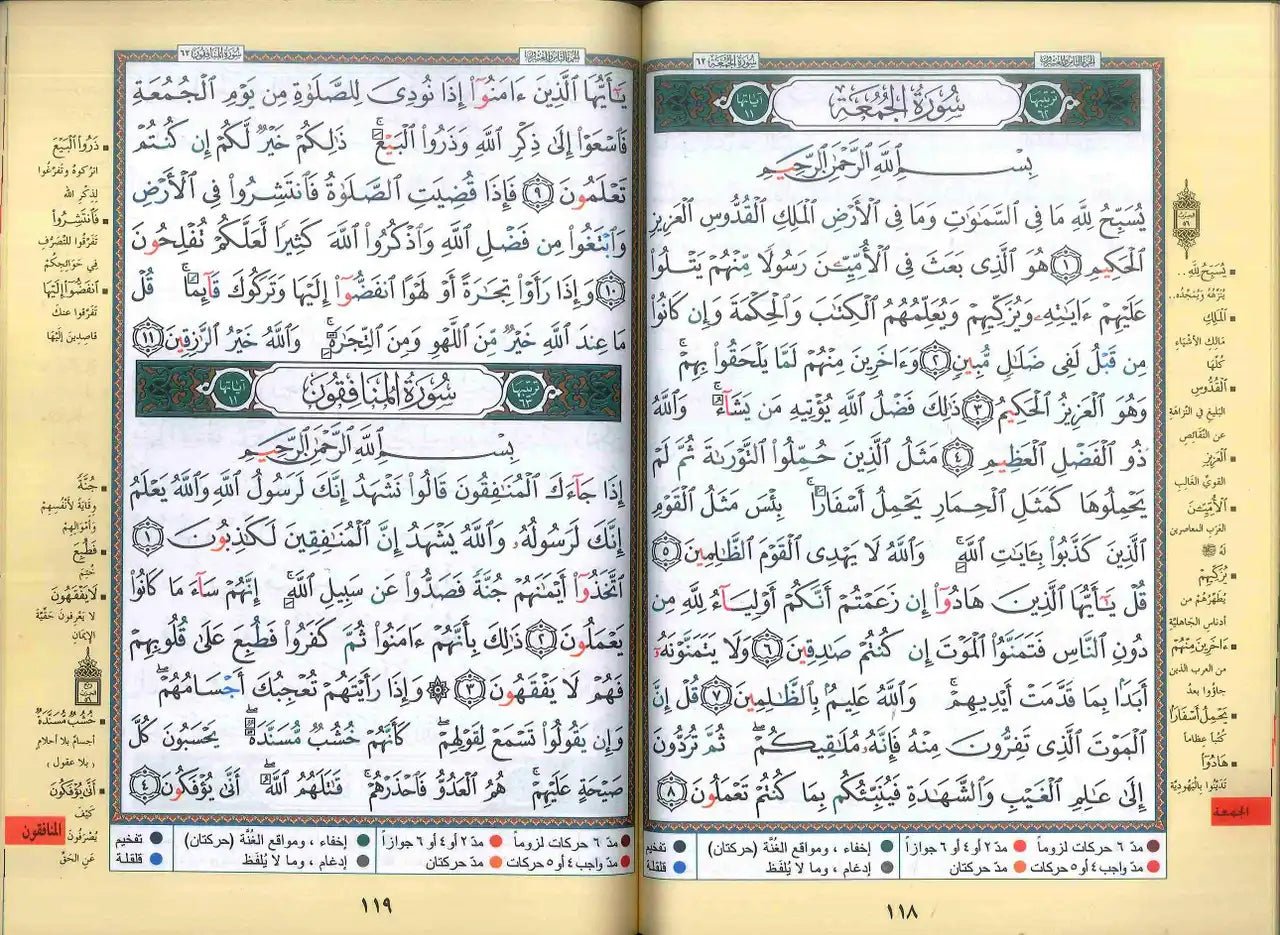 سُورَةُ الجُمُعَة ٦٢
الجُزءُ الثَّامِنُ وَالعِشْرُونَ
ترتيبها ٦٢
سُورَةُ الجُمُعَةِ
آياتها ١١
بِسْمِ اللَّهِ الرَّحْمَٰنِ الرَّحِيمِ
يُسَبِّحُ لِلَّهِ مَا فِى السَّمَٰوَٰتِ وَمَا فِى الْأَرْضِ الْمَلِكِ الْقُدُّوسِ الْعَزِيزِ
الْحَكِيمِ ١ هُوَ الَّذِى بَعَثَ فِى الْأُمِّيِّـۧنَ رَسُولًا مِّنْهُمْ يَتْلُوا۟
عَلَيْهِمْ ءَايَٰتِهِۦ وَيُزَكِّيهِمْ وَيُعَلِّمُهُمُ الْكِتَٰبَ وَالْحِكْمَةَ وَإِن كَانُوا۟
مِن قَبْلُ لَفِى ضَلَٰلٍ مُّبِينٍ ٢ وَءَاخَرِينَ مِنْهُمْ لَمَّا يَلْحَقُوا۟ بِهِمْ ۚ
وَهُوَ الْعَزِيزُ الْحَكِيمُ ٣ ذَٰلِكَ فَضْلُ اللَّهِ يُؤْتِيهِ مَن يَشَآءُ ۚ وَاللَّهُ
ذُو الْفَضْلِ الْعَظِيمِ ٤ مَثَلُ الَّذِينَ حُمِّلُوا۟ التَّوْرَىٰةَ ثُمَّ لَمْ
يَحْمِلُوهَا كَمَثَلِ الْحِمَارِ يَحْمِلُ أَسْفَارًۢا ۚ بِئْسَ مَثَلُ الْقَوْمِ
الَّذِينَ كَذَّبُوا۟ بِـَٔايَٰتِ اللَّهِ ۚ وَاللَّهُ لَا يَهْدِى الْقَوْمَ الظَّٰلِمِينَ ٥
قُلْ يَٰٓأَيُّهَا الَّذِينَ هَادُوٓا۟ إِن زَعَمْتُمْ أَنَّكُمْ أَوْلِيَآءُ لِلَّهِ مِن
دُونِ النَّاسِ فَتَمَنَّوُا۟ الْمَوْتَ إِن كُنتُمْ صَٰدِقِينَ ٦ وَلَا يَتَمَنَّوْنَهُۥٓ
أَبَدًۢا بِمَا قَدَّمَتْ أَيْدِيهِمْ ۚ وَاللَّهُ عَلِيمٌۢ بِالظَّٰلِمِينَ ٧ قُلْ إِنَّ
الْمَوْتَ الَّذِى تَفِرُّونَ مِنْهُ فَإِنَّهُۥ مُلَٰقِيكُمْ ۖ ثُمَّ تُرَدُّونَ
إِلَىٰ عَٰلِمِ الْغَيْبِ وَالشَّهَٰدَةِ فَيُنَبِّئُكُم بِمَا كُنتُمْ تَعْمَلُونَ ٨
يُسَبِّحُ لِلَّهِ..
يُنَزِّهُهُ وَيُمَجِّدُه..
الْمَلِكِ
مَالِكِ الأَشْيَاءِ
كُلِّهَا
الْقُدُّوسِ
البَلِيغِ فِي النَّزَاهَةِ
عن النَّقَائِصِ
الْعَزِيزِ
القَوِيِّ الغَالِبِ
الْأُمِّيِّـۧنَ
العَرَبِ المعاصرين
لَهُ ﷺ
يُزَكِّيهِمْ
يُطَهِّرُهُمْ من
أدناسِ الجَاهليَّةِ
ءَاخَرِينَ مِنْهُمْ
من العرب الذين
جاؤُوا بعدُ
يَحْمِلُ أَسْفَارًا
كُتُباً عِظَاماً
هَادُوٓا۟
تَدَيَّنُوا بِاليَهُودِيَّةِ
الجمعة
مدّ ٦ حركات لزوماً مدّ ٢ أو ٤ أو ٦ جوازاً إخفاء ، ومواقع الغُنَّة (حركتان) تفخيم
مدّ واجب ٤ أو ٥ حركات مدّ حركتان إدغام ، وما لا يُلفَظ قلقلة
١١٨
سُورَةُ المُنَافِقُونَ ٦٣
الجُزءُ الثَّامِنُ وَالعِشْرُونَ
يَٰٓأَيُّهَا الَّذِينَ ءَامَنُوٓا۟ إِذَا نُودِىَ لِلصَّلَوٰةِ مِن يَوْمِ الْجُمُعَةِ
فَاسْعَوْا۟ إِلَىٰ ذِكْرِ اللَّهِ وَذَرُوا۟ الْبَيْعَ ۚ ذَٰلِكُمْ خَيْرٌ لَّكُمْ إِن كُنتُمْ
تَعْلَمُونَ ٩ فَإِذَا قُضِيَتِ الصَّلَوٰةُ فَانتَشِرُوا۟ فِى الْأَرْضِ
وَابْتَغُوا۟ مِن فَضْلِ اللَّهِ وَاذْكُرُوا۟ اللَّهَ كَثِيرًا لَّعَلَّكُمْ تُفْلِحُونَ
١٠ وَإِذَا رَأَوْا۟ تِجَٰرَةً أَوْ لَهْوًا انفَضُّوٓا۟ إِلَيْهَا وَتَرَكُوكَ قَآئِمًا ۚ قُلْ
مَا عِندَ اللَّهِ خَيْرٌ مِّنَ اللَّهْوِ وَمِنَ التِّجَٰرَةِ ۚ وَاللَّهُ خَيْرُ الرَّٰزِقِينَ ١١
ترتيبها ٦٣
سُورَةُ المُنَافِقُونَ
آياتها ١١
بِسْمِ اللَّهِ الرَّحْمَٰنِ الرَّحِيمِ
إِذَا جَآءَكَ الْمُنَٰفِقُونَ قَالُوا۟ نَشْهَدُ إِنَّكَ لَرَسُولُ اللَّهِ وَاللَّهُ يَعْلَمُ
إِنَّكَ لَرَسُولُهُۥ وَاللَّهُ يَشْهَدُ إِنَّ الْمُنَٰفِقِينَ لَكَٰذِبُونَ ١
اتَّخَذُوٓا۟ أَيْمَٰنَهُمْ جُنَّةً فَصَدُّوا۟ عَن سَبِيلِ اللَّهِ ۚ إِنَّهُمْ سَآءَ مَا كَانُوا۟
يَعْمَلُونَ ٢ ذَٰلِكَ بِأَنَّهُمْ ءَامَنُوا۟ ثُمَّ كَفَرُوا۟ فَطُبِعَ عَلَىٰ قُلُوبِهِمْ
فَهُمْ لَا يَفْقَهُونَ ٣ ۞ وَإِذَا رَأَيْتَهُمْ تُعْجِبُكَ أَجْسَامُهُمْ ۖ
وَإِن يَقُولُوا۟ تَسْمَعْ لِقَوْلِهِمْ ۖ كَأَنَّهُمْ خُشُبٌ مُّسَنَّدَةٌ ۖ يَحْسَبُونَ كُلَّ
صَيْحَةٍ عَلَيْهِمْ ۚ هُمُ الْعَدُوُّ فَاحْذَرْهُمْ ۚ قَٰتَلَهُمُ اللَّهُ ۖ أَنَّىٰ يُؤْفَكُونَ ٤
ذَرُوا۟ الْبَيْعَ
اتْرُكوهُ وتَفَرَّغُوا
لِذِكْرِ الله
فَانتَشِرُوا۟
تَفَرَّقُوا للتَّصَرُّفِ
فِي حَوَائِجِكُمْ
انفَضُّوٓا۟ إِلَيْهَا
تَفَرَّقُوا عنك
قاصِدِينَ إِلَيْهَا
جُنَّةً
وِقَايَةً لأَنْفُسِهِمْ
وَأَمْوَالِهِمْ
فَطُبِعَ
خُتِمَ
لَا يَفْقَهُونَ
لا يَعْرِفُونَ حَقِّيَّةَ
الإِيمَانِ
خُشُبٌ مُّسَنَّدَةٌ
أجسامٌ بلا أحلامٍ
(بلا عقول)
أَنَّىٰ يُؤْفَكُونَ
كَيْفَ
يُصْرَفُونَ
عَنِ الحَقِّ
المنافقون
مدّ ٦ حركات لزوماً مدّ ٢ أو ٤ أو ٦ جوازاً إخفاء ، ومواقع الغُنَّة (حركتان) تفخيم
مدّ واجب ٤ أو ٥ حركات مدّ حركتان إدغام ، وما لا يُلفَظ قلقلة
١١٩